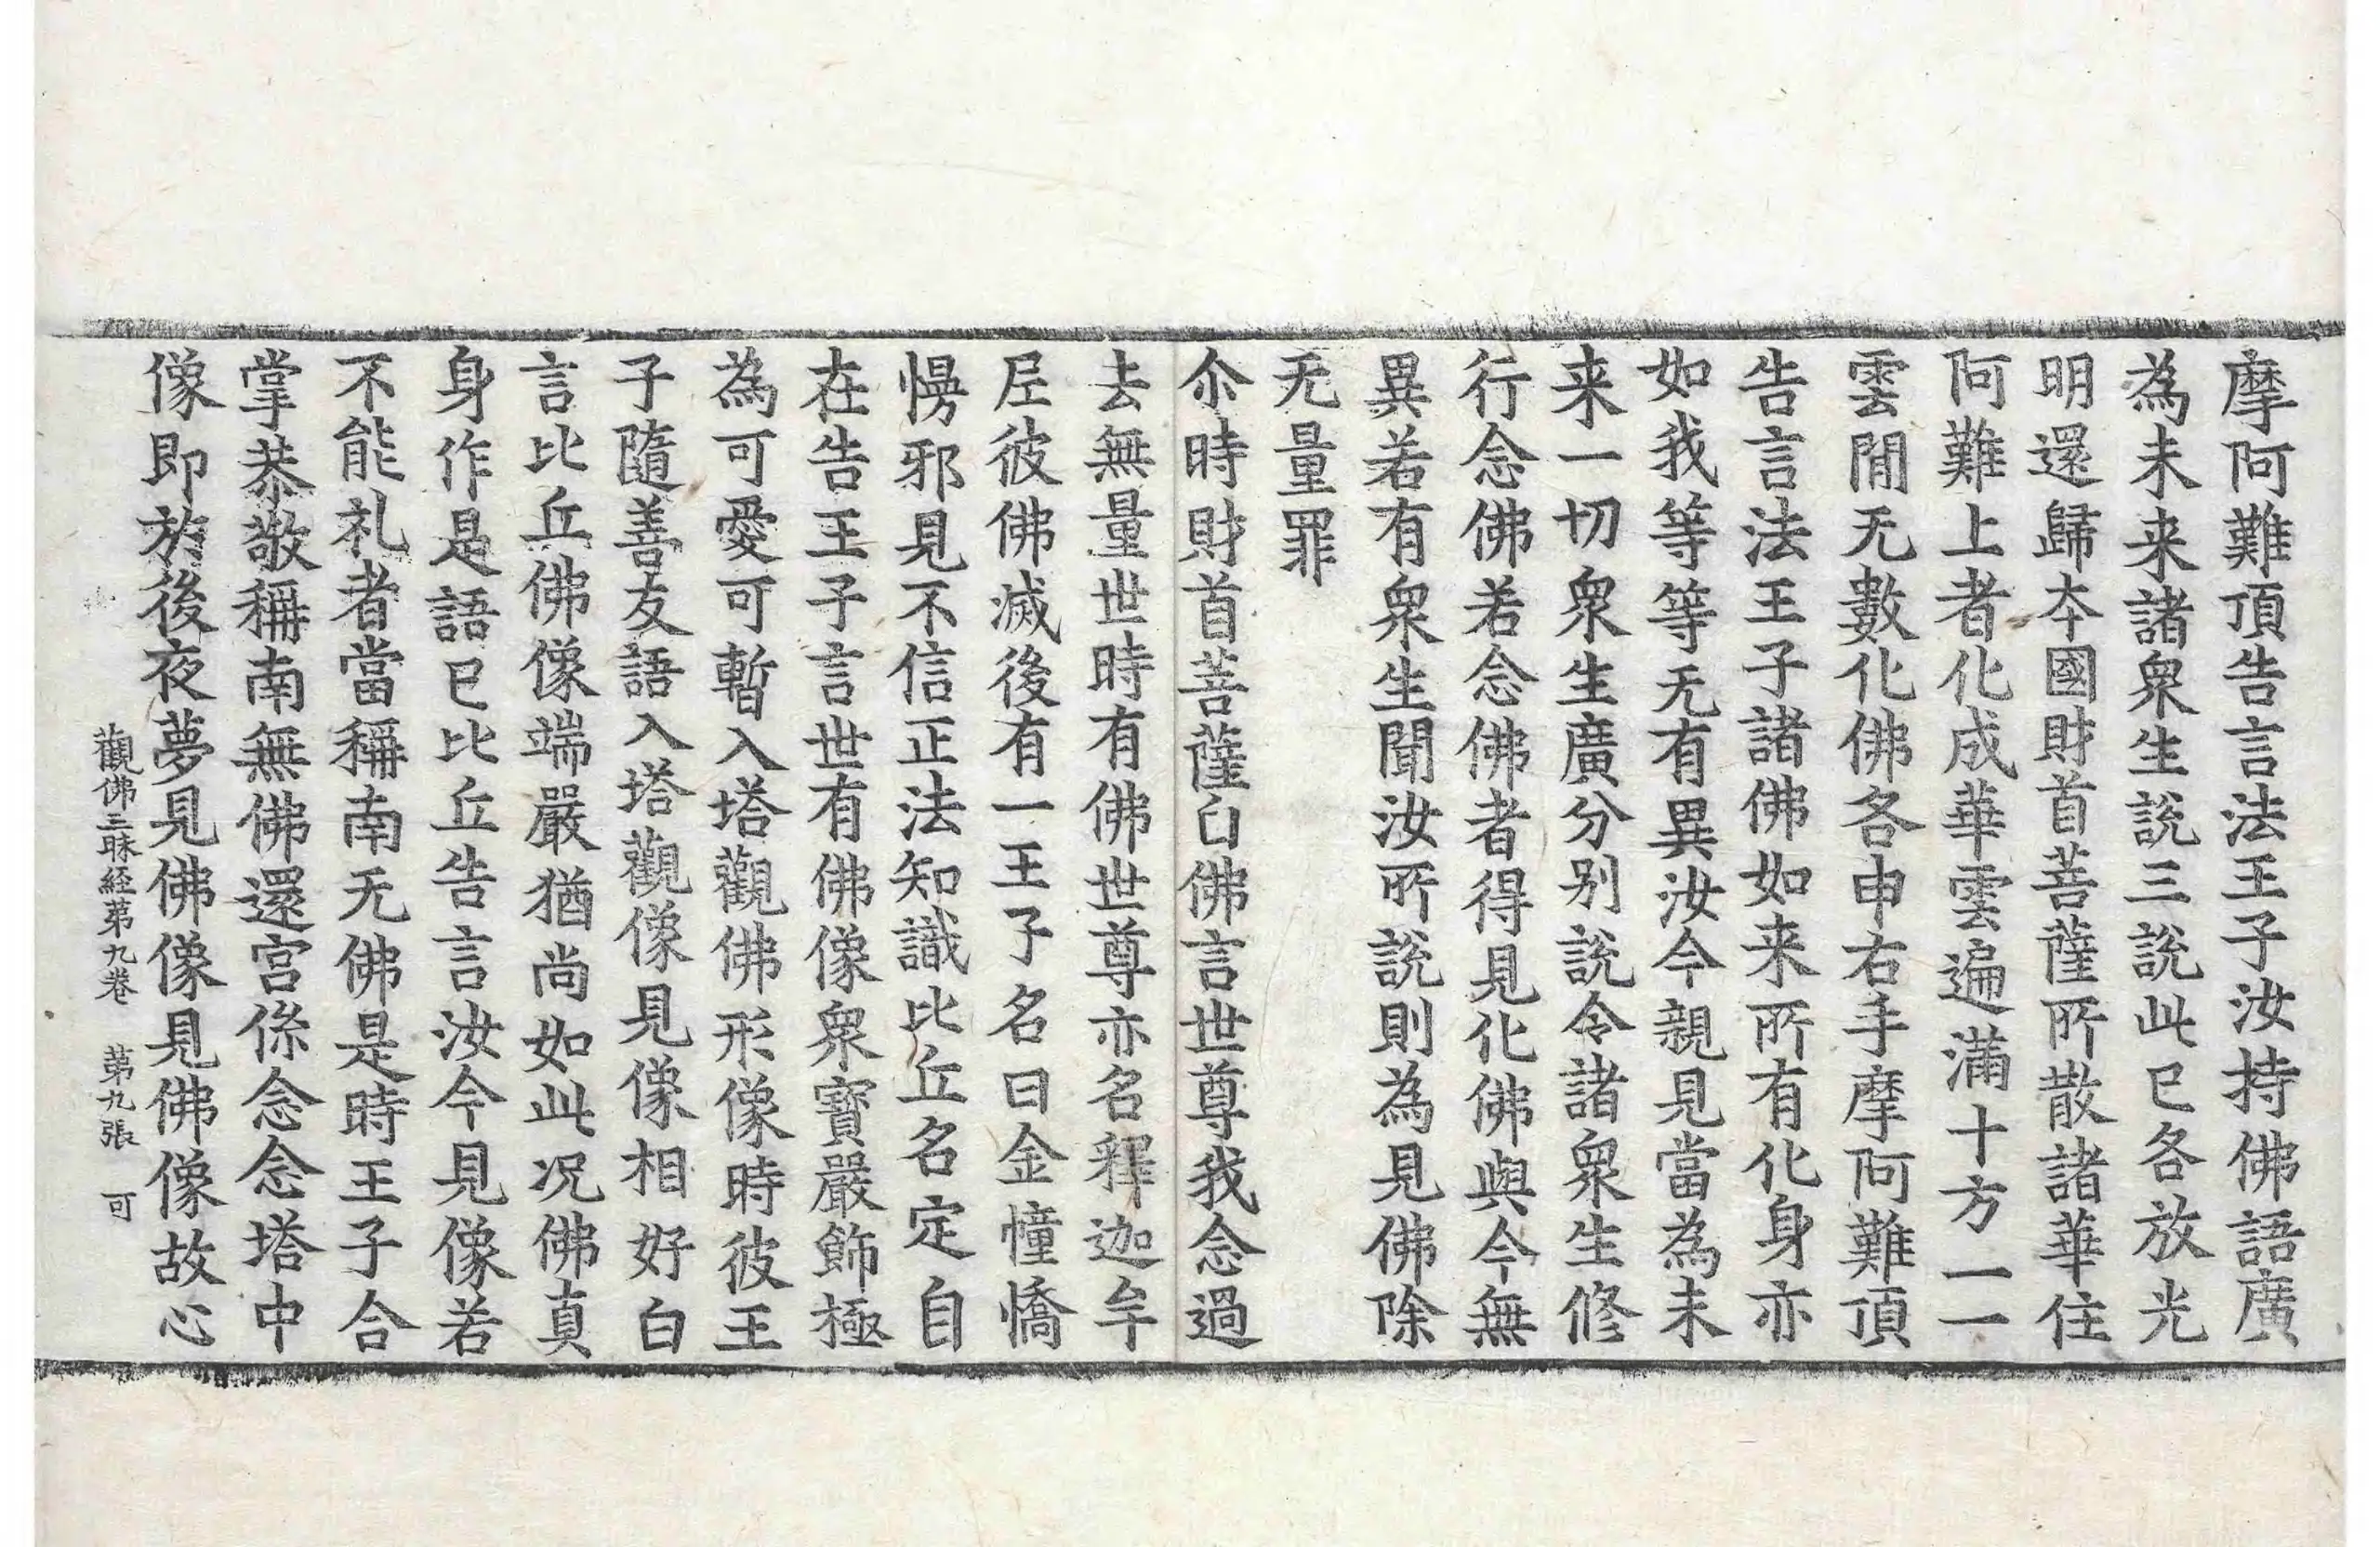 摩阿難頂告言法王子汝持佛語廣
為未来諸衆生說三說此已各放光
明還歸本國財首菩薩所散諸華住
阿難上者化成華雲遍滿十方一一
雲閒无數化佛各申右手摩阿難頂
告言法王子諸佛如来所有化身亦
如我等等无有異汝今親見當為未
来一切衆生廣分别說令諸衆生修
行念佛若念佛者得見化佛與今無
異若有衆生聞汝所說則為見佛除
无量罪
尒時財首菩薩白佛言世尊我念過
去無量世時有佛世尊亦名釋迦牟
尼彼佛滅後有一王子名曰金憧憍
慢邪見不信正法知識比丘名定自
在告王子言世有佛像衆寶嚴飾極
為可愛可暫入塔觀佛形像時彼王
子隨善友語入塔觀像見像相好白
言比丘佛像端嚴猶尚如此况佛真
身作是語已比丘告言汝今見像若
不能礼者當稱南无佛是時王子合
掌恭敬稱南無佛還宮係念念塔中
像即於後夜夢見佛像見佛像故心
觀佛三昧経苐九卷 苐九張 可